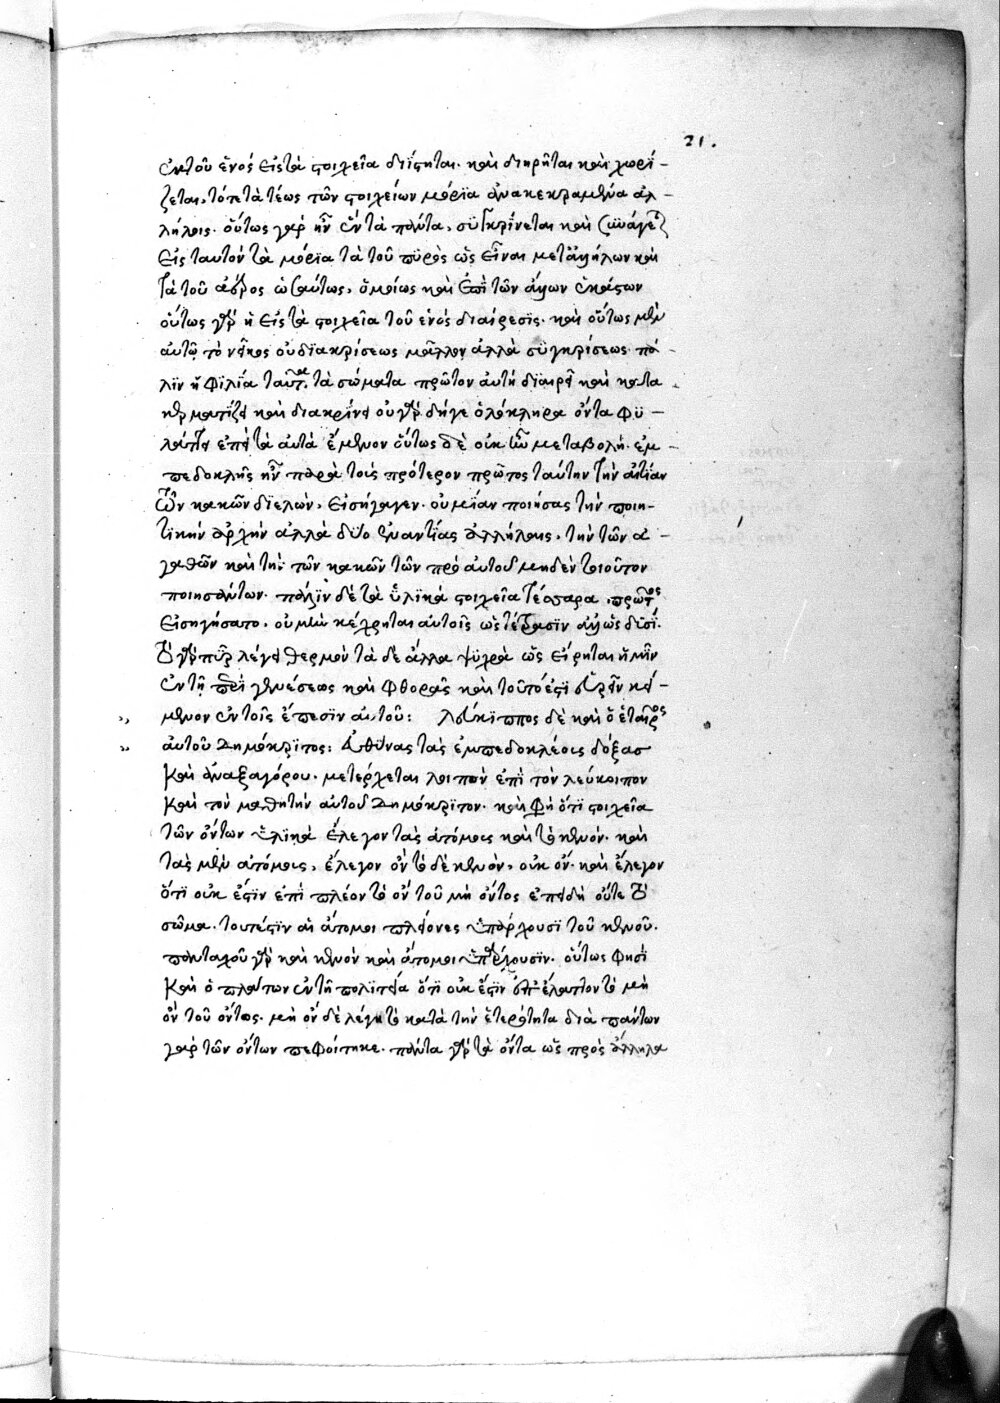 21.
ἐκ τοῦ ἑνός εἰς τὰ στοιχεῖα διΐσταται. καὶ διηρῆται καὶ χωρί-
ζεται, τότε τὰ τέως τῶν στοιχείων μόρϊα ἀνακεκραμένα ἀλ-
λήλοις. οὕτως γὰρ ἦν ἓν τὰ πάντα, συγκρίνεται καὶ συνάγεται
εἰς ταυτὸν τὰ μόρϊα τὰ τοῦ πυρὸς ὡς εἶναι μετ' ἀλλήλων καὶ
τὰ τοῦ ἀέρος ὡσαύτως, ὁμοίως καὶ ἐπὶ τῶν ἄλλων ἑκάστων
οὕτως γὰρ ἡ εἰς τὰ στοιχεῖα τοῦ ἑνός διαίρεσϊς. καὶ οὕτως μὲν
αὐτῷ τὸ νεῖκος οὐ διακρίσεως μᾶλλον ἀλλὰ συγκρίσεως πά-
λϊν ἡ φϊλΐα τὰ σώματα πρῶτον αὐτὴ διαιρεῖ καὶ κατα
κερματΐζει καὶ διακρίνει οὐ γὰρ δήγε ὁλόκληρα ὄντα φϋ-
λάττει ἐπεὶ τὰ αὐτὰ ἔμενον οὕτως δὲ οὐκ ἦν μεταβολή. ἐμ-
πεδοκλῆς ἦν παρὰ τοὺς πρότερον πρῶτος ταύτην τὴν αἰτίαν
τῶν κακῶν διελών, εἰσήγαγεν. οὐ μίαν ποιήσας τὴν ποιη-
τϊκὴν ἀρχὴν ἀλλὰ δύο ἐναντίας ἀλλήλαις, τὴν τῶν ἀ-
γαθῶν καὶ τὴν τῶν κακῶν τῶν πρὸ αὐτοῦ μηδὲν τοιοῦτον
ποιησάντων. πάλϊν δὲ τὰ ὑλϊκά στοιχεῖα τέσσαρα πρῶτος
εἰσηγήσατο, οὐ μὴν κέχρηται αὐτοῖς ὡς τέτρασϊν ἀλλ' ὡς δυσί.
τὸ γὰρ πῦρ λέγει θερμὸν τὰ δὲ ἄλλα ψυχρὰ ὡς εἴρηται ἡμῖν
ἐν τῇ περὶ γενέσεως καὶ φθορᾶς καὶ τοῦτό ἐστι εὑρεῖν κεί-
μενον ἐν τοῖς ἔπεσϊν αὐτοῦ: Λεύκϊππος δὲ καὶ ὁ ἑταῖρος
αὐτοῦ Δημόκρϊτος: τὰς ἐμπεδοκλέους δόξας
καὶ ἀναξαγόρου. μετέρχεται λοιπὸν ἐπὶ τὸν λεύκιππον
καὶ τὸν μαθητὴν αὐτοῦ Δημόκρϊτον. καὶ φησὶ ὅτι στοιχεῖα
τῶν ὄντων ὑλϊκὰ ἔλεγον τὰς ἀτόμους καὶ τὸ κενόν. καὶ
τὰς μὲν ἀτόμους, ἔλεγον ὂν τὸ δὲ κενὸν, οὐκ ὄν. καὶ ἔλεγον
ὅτϊ οὐκ ἔστϊν ἐπὶ πλέον τὸ ὂν τοῦ μὴ ὄντος ἐπειδὴ οὔτε τὸ
σῶμα. τουτέστϊν αἱ ἄτομοι πλείονες ὑπάρχουσϊ τοῦ κενοῦ.
πανταχοῦ γὰρ καὶ κενὸν καὶ ἄτομοι ὑπάρχουσϊν. οὕτως φησὶ
καὶ ὁ πλάτων ἐν τῇ πολϊτείᾳ ὅτι οὐκ ἔστϊν ἔλαττον τὸ μὴ
ὂν τοῦ ὄντος. μὴ ὂν δὲ λέγει τὸ κατὰ τὴν ἑτερότητα διὰ πάντων
γὰρ τῶν ὄντων πεφοίτηκε. πάντα γὰρ τὰ ὄντα ὡς πρὸς ἄλληλα